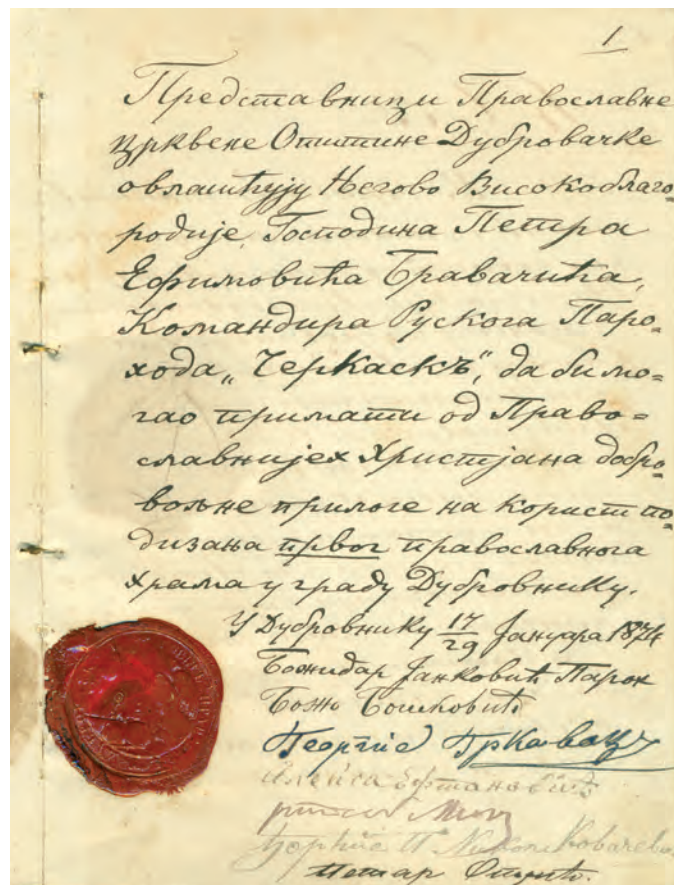 1
Представници Православне
црквене Општине Дубровачке
овлашћују Његово Високоблаго-
родије, Господина Петра
Ефимовића Бравачића,
Командира Рускога Паро-
хода „Черкаскъ“, да би мо-
гао примати од Право-
славнијех Христјана добро-
вољне прилоге на корист по-
дизања првог православнога
храма у граду Дубровнику.
У Дубровнику 17/29 Јануара 1874
Божидар Јанковић Парох
Божо Бошковић
Георгије
Алекса
Ђорђе Николе Ковачев
Петар